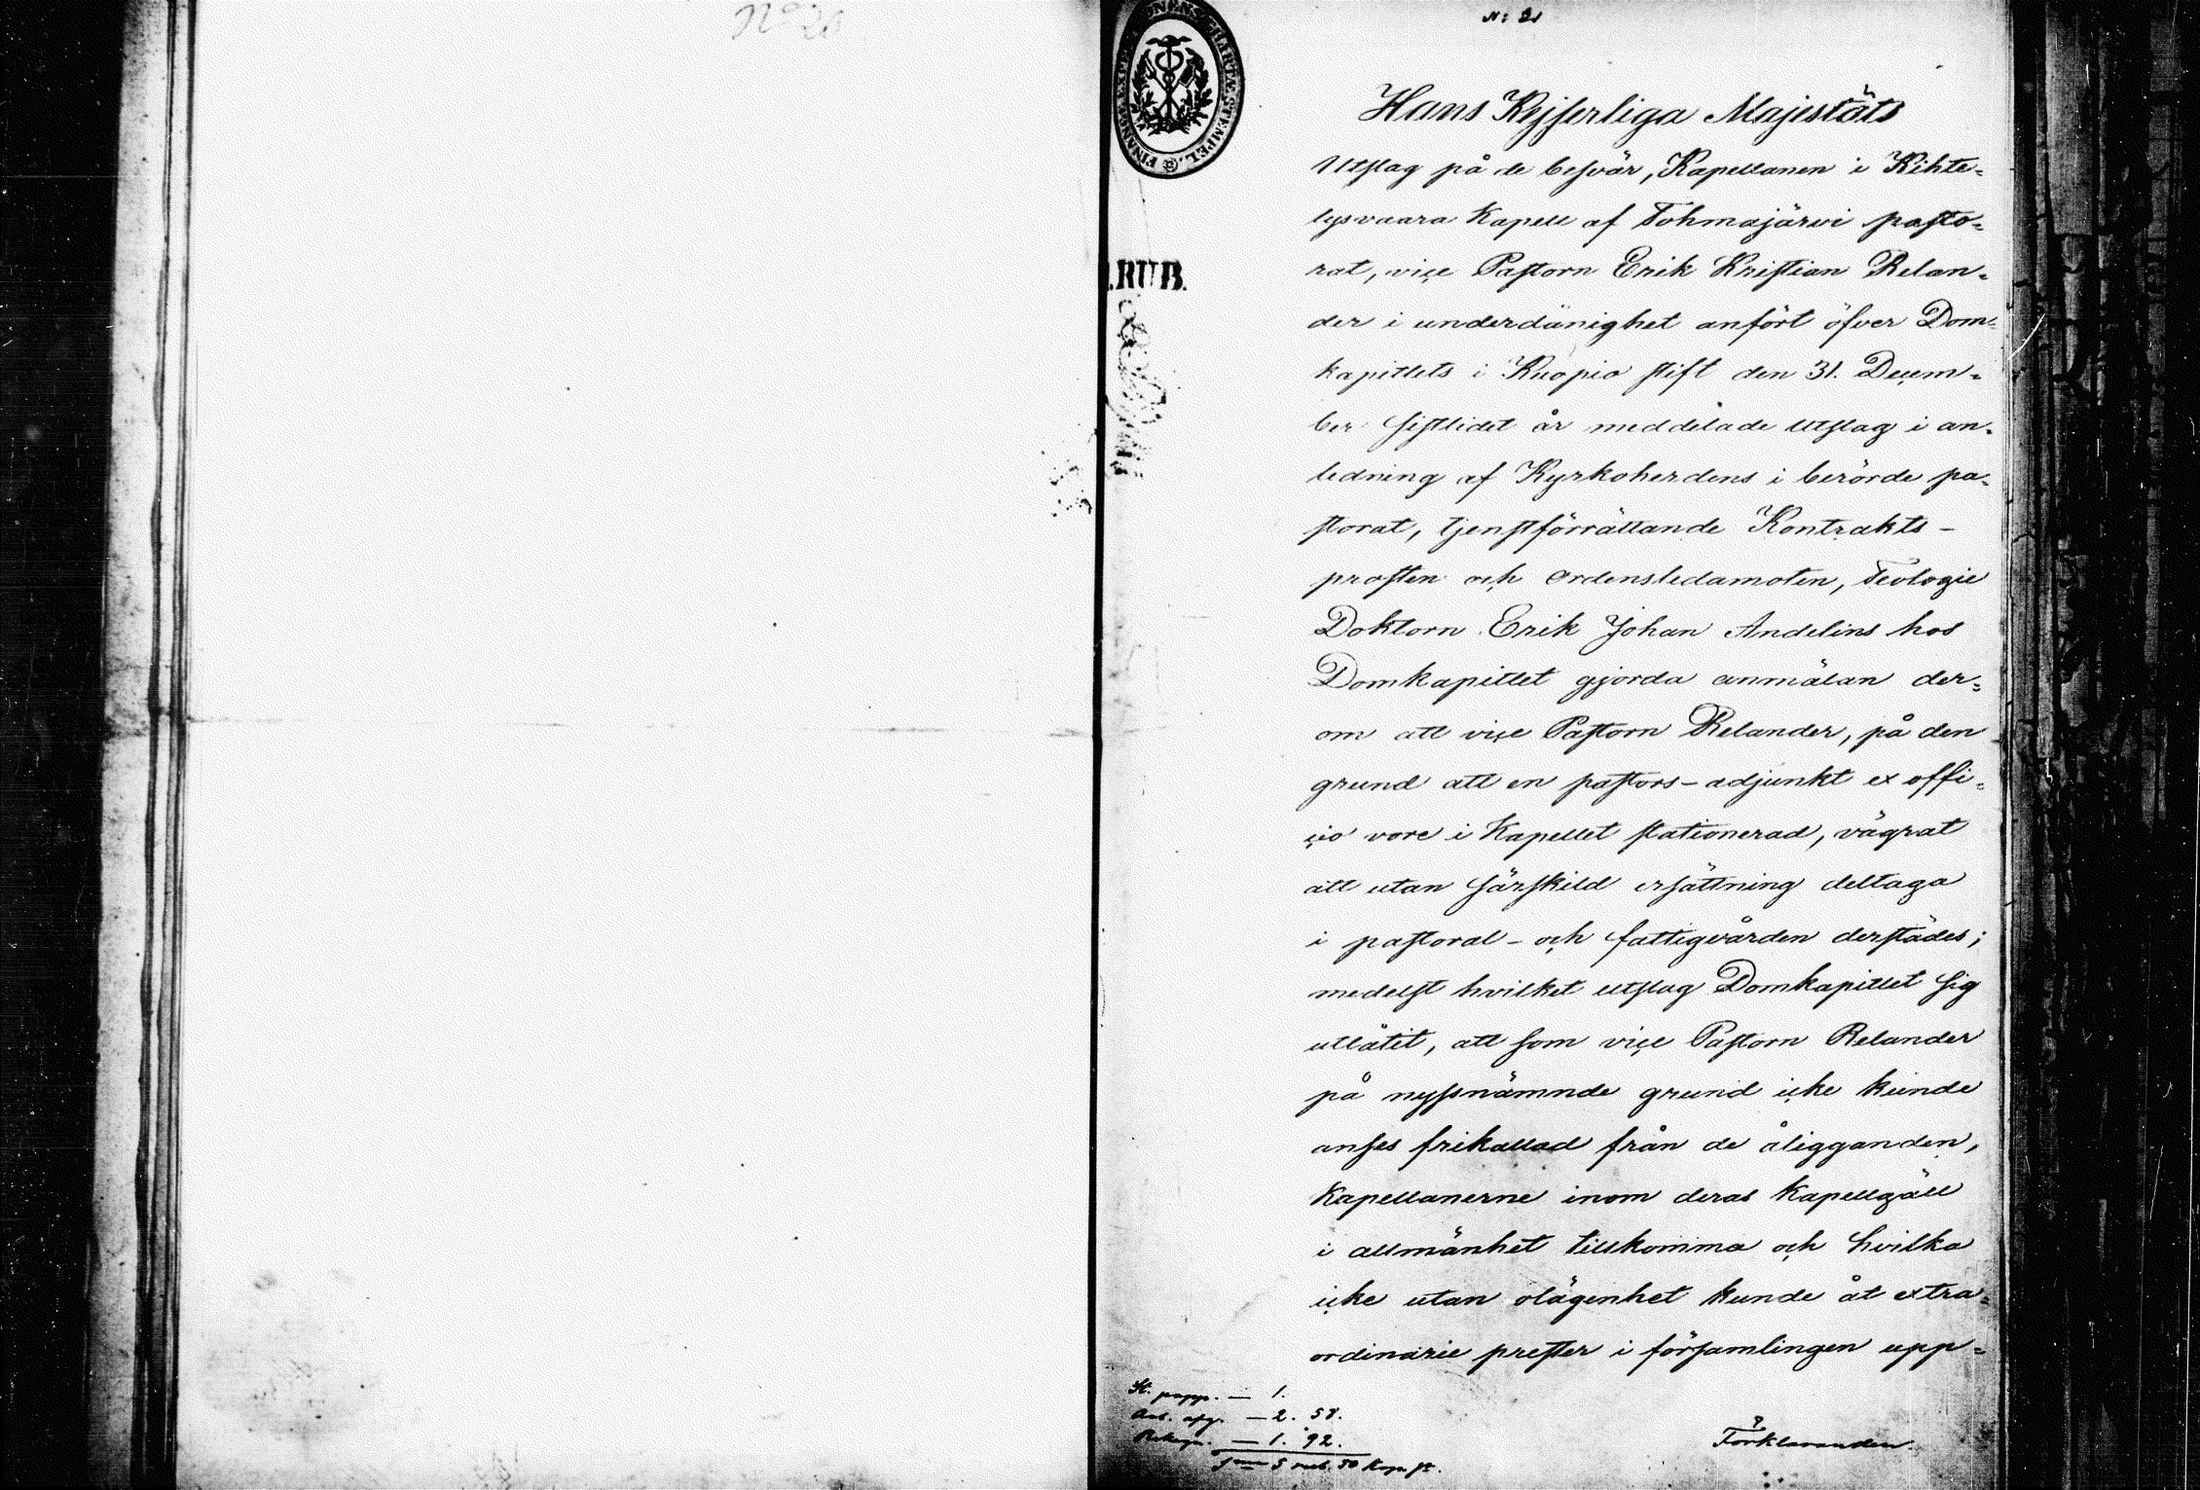 N: 21
Hans Kejserliga Majestäts
Utslag på de besvär, Kapellanen i Kihte-
lysvaara Kapell af Tohmajärvi pasto-
rat, vice Pastorn Erik Kristian Relan-
der i underdånighet anfört öfver Dom-
kapitlets i Kuopio stift den 31. Decem-
ber sistlidet år meddelade utslag i an-
ledning af Kyrkoherdens i berörde pa-
storat, tjenstförrättande Kontrakts-
prosten och ordensledamoten, Teologie
Doktorn Erik Johan Andelins hos
Domkapitlet gjorda anmälan der-
om att vice Pastorn Relander, på den
grund att en pastors-adjunkt ex offi-
cio vore i Kapellet stationerad, vägrat
att utan särskild ersättning deltaga
i pastoral- och fattigvården derstädes;
medelst hvilket utslag Domkapitlet sig
utlåtit, att som vice Pastorn Relander
på nyssnämnde grund icke kunde
anses frikallad från de åligganden,
Kapellanerne inom deras Kapellgäll
i allmänhet tillkomma och hvilka
icke utan olägenhet kunde åt extra-
ordinarie prester i församlingen upp-
RUB.
St. papp. — 1.
— 2. 58.
— 1. 92.
5 rub. 50 kop.